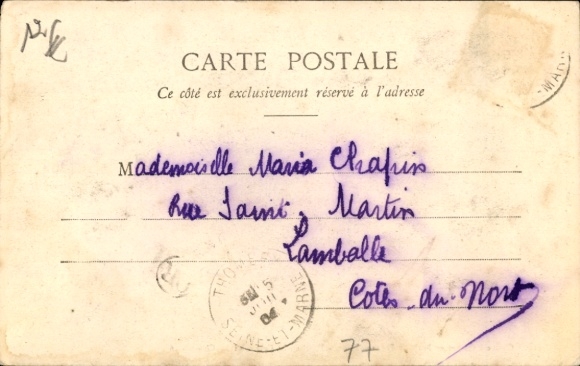 CARTE POSTALE
Ce côté est exclusivement réservé à l'adresse
Mademoiselle Maria Chapin
Rue Saint. Martin
Lamballe
Côtes-du-Nord
SEINE-ET-MARNE
04
77